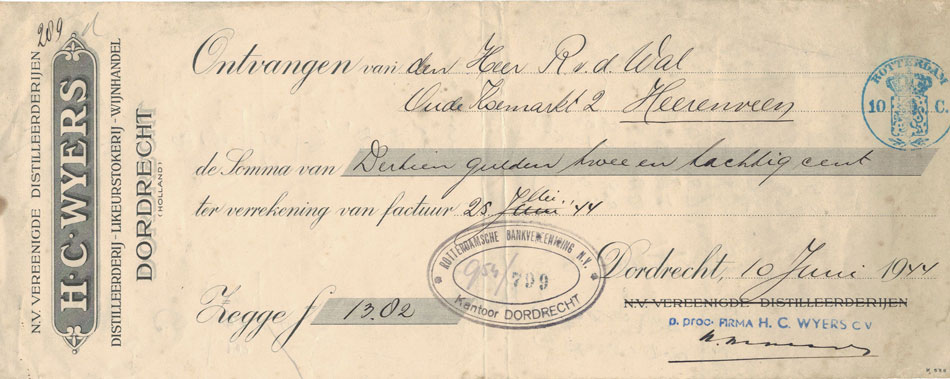 209
N.V. VEREENIGDE DISTILLEERDERIJEN
H·C·WYERS
DISTILLEERDERIJ-LIKEURSTOKERIJ-WIJNHANDEL
DORDRECHT
(HOLLAND)
Ontvangen van den Heer R v. d. Wal
Oude Koemarkt 2 Heerenveen
ROTTERDAM
10 C.
de Somma van Dertien gulden twee en tachtig cent
ter verrekening van factuur 25 Mei '44
ROTTERDAMSCHE BANKVEREENIGING N.V.
954/799
Kantoor DORDRECHT
Dordrecht, 10 Juni 1944
N.V. VEREENIGDE DISTILLEERDERIJEN
p. proc. FIRMA H. C. WYERS C V
Zegge f 13.82